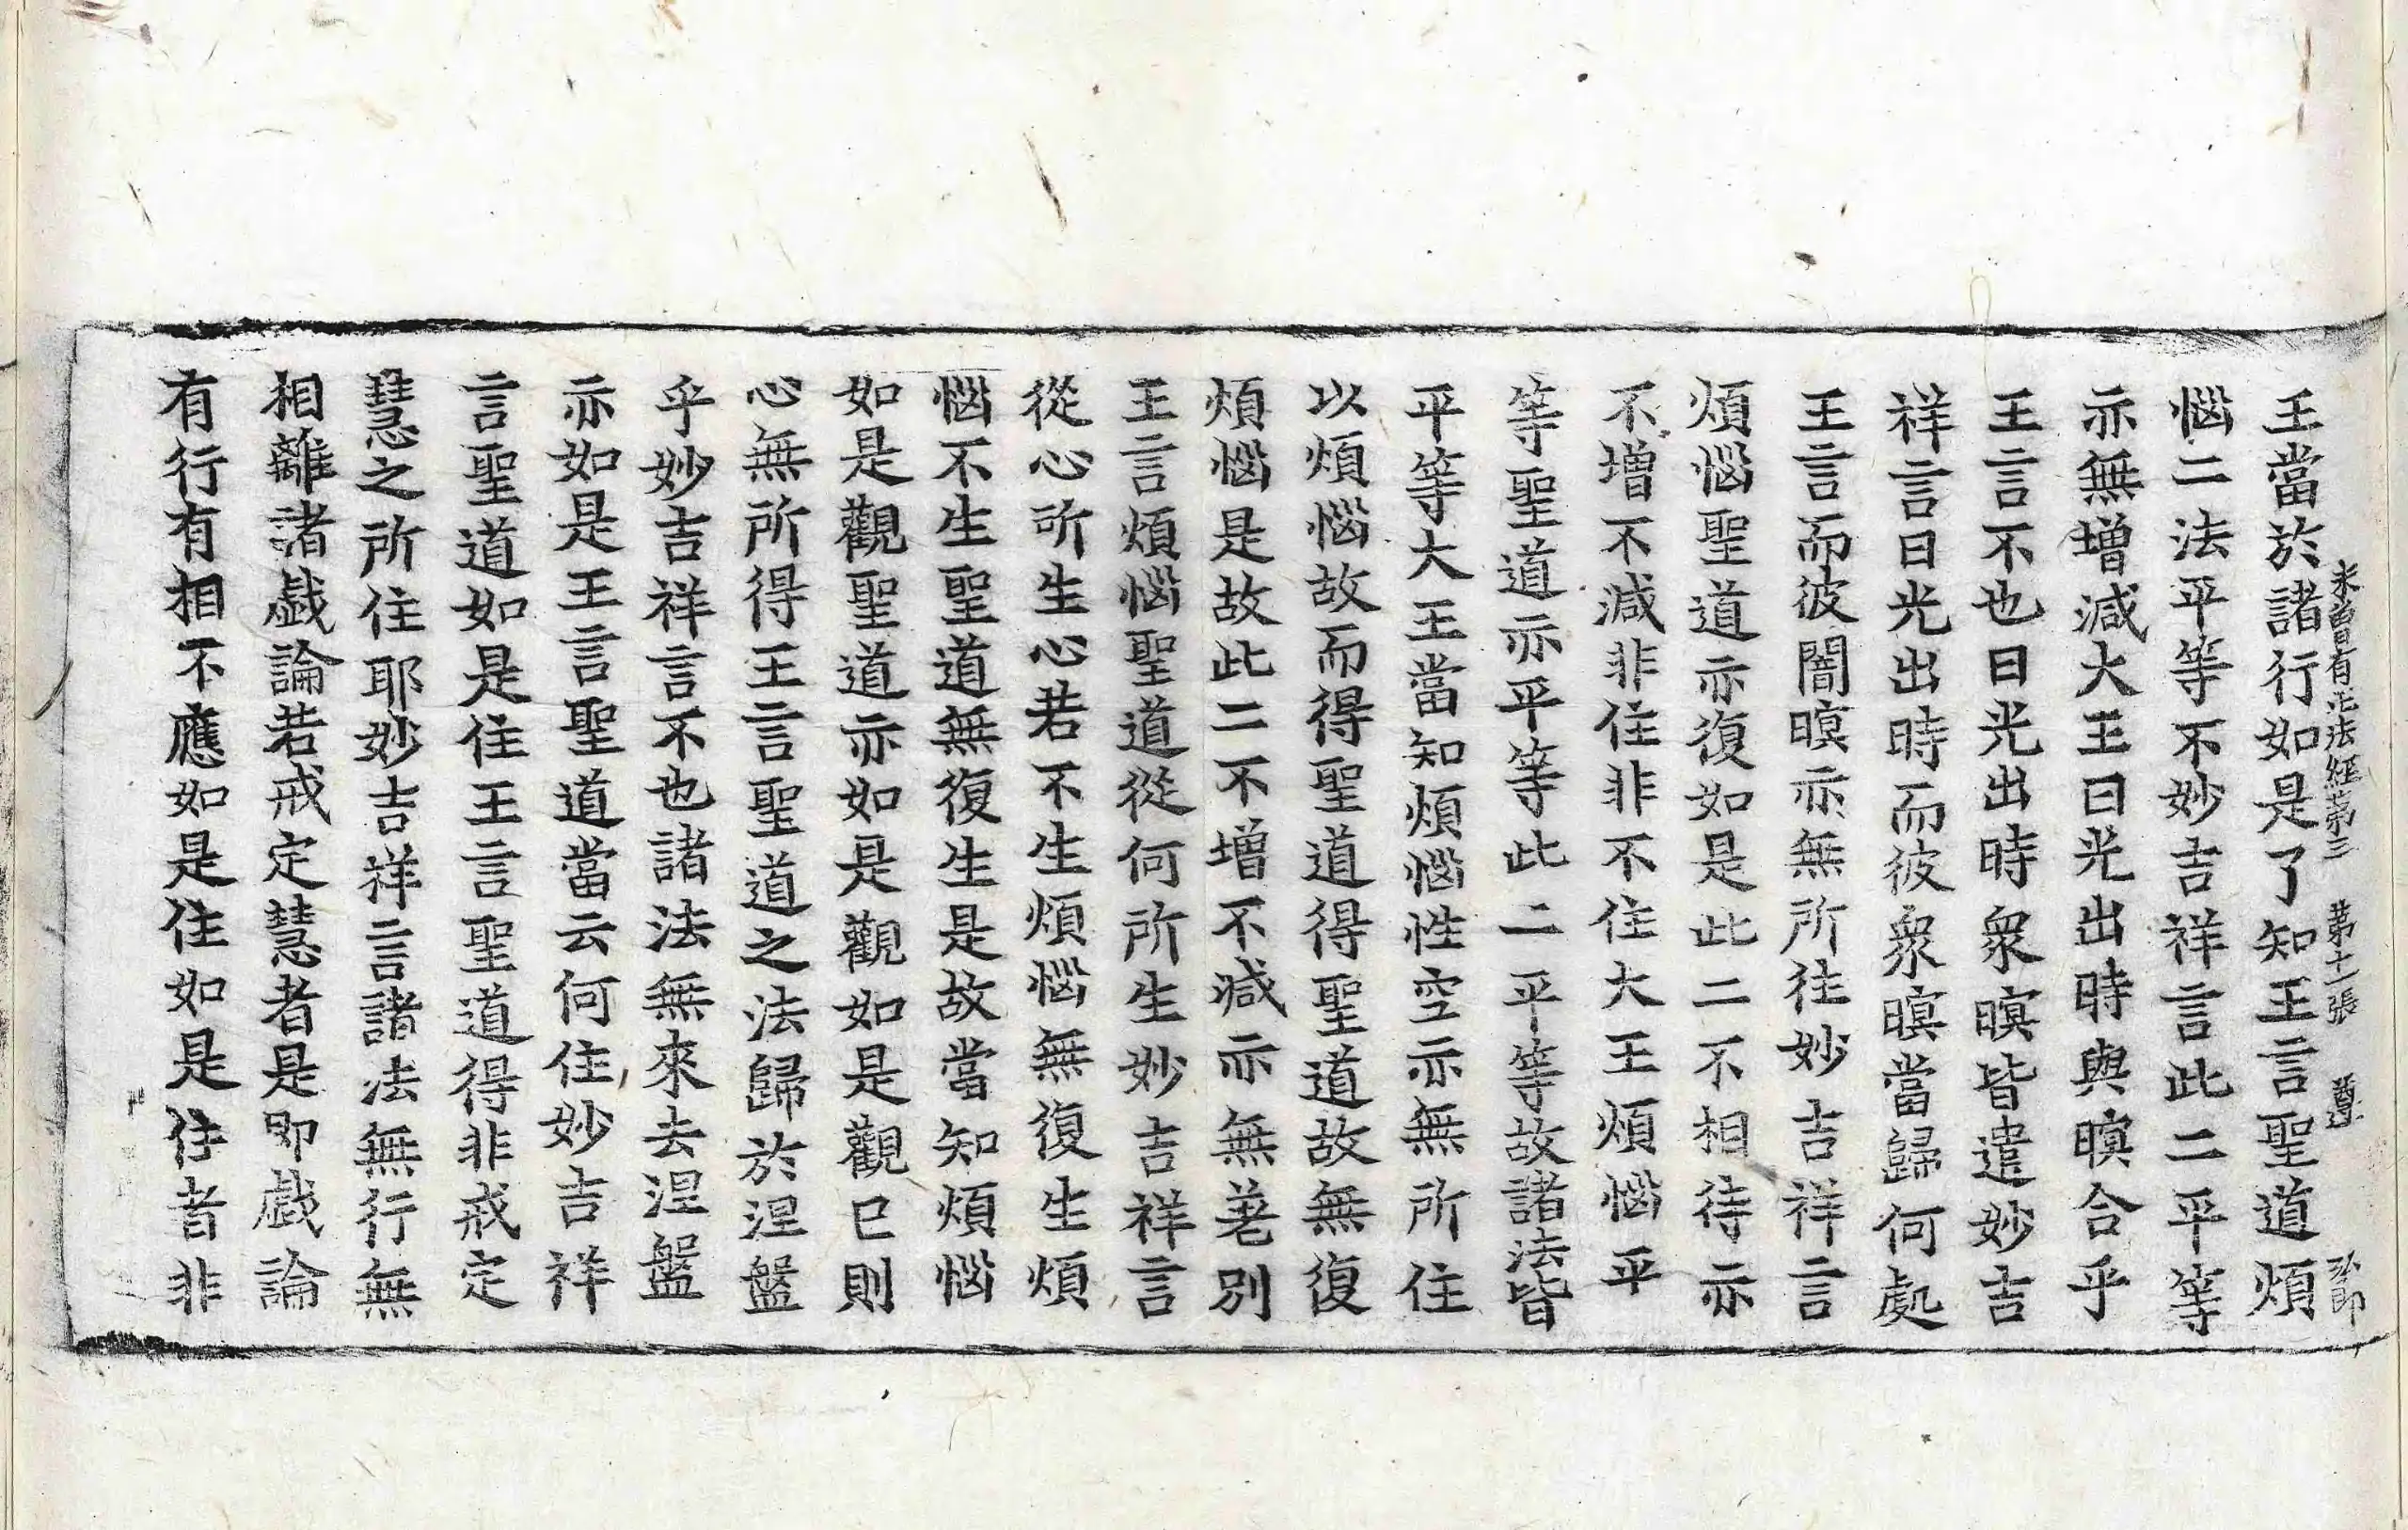 未曾有正法經第三 第十一張 尊
王當於諸行如是了知王言聖道煩
惱二法平等不妙吉祥言此二平等
亦無增減大王日光出時與暝合乎
王言不也日光出時衆暝皆遣妙吉
祥言日光出時而彼衆暝當歸何處
王言而彼闇暝亦無所往妙吉祥言
煩惱聖道亦復如是此二不相待亦
不增不減非住非不住大王煩惱平
等聖道亦平等此二平等故諸法皆
平等大王當知煩惱性空亦無所住
以煩惱故而得聖道得聖道故無復
煩惱是故此二不增不減亦無差別
王言煩惱聖道從何所生妙吉祥言
從心所生心若不生煩惱無復生煩
惱不生聖道無復生是故當知煩惱
如是觀聖道亦如是觀如是觀已則
心無所得王言聖道之法歸於涅盤
乎妙吉祥言不也諸法無來去涅盤
亦如是王言聖道當云何住妙吉祥
言聖道如是住王言聖道得非戒定
慧之所住耶妙吉祥言諸法無行無
相離諸戱論若戒定慧者是即戱論
有行有相不應如是住如是住者非